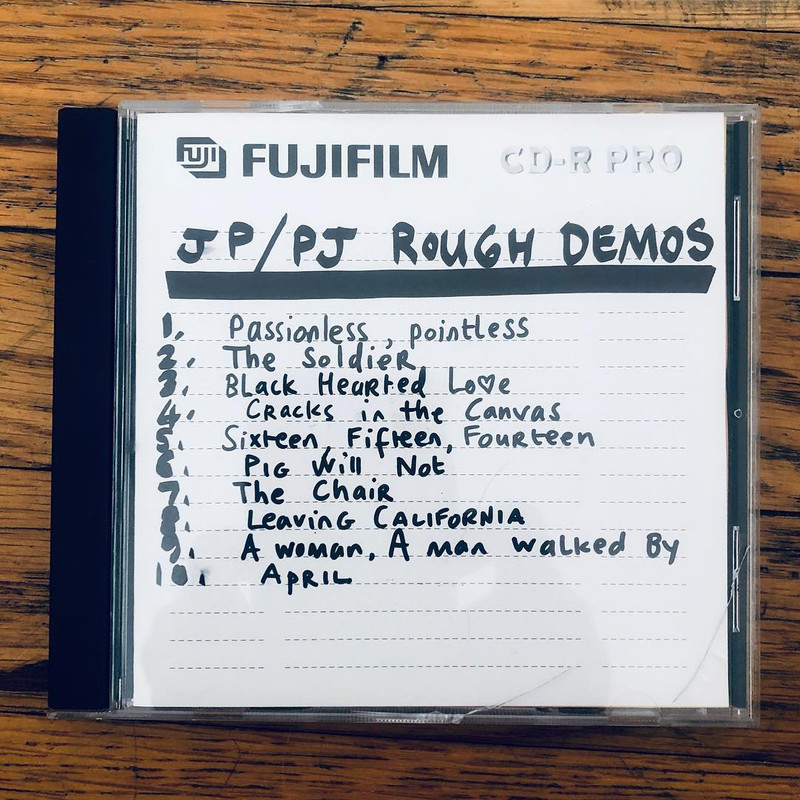 FUJI FUJIFILM CD-R PRO
JP/PJ ROUGH DEMOS
1. Passionless, pointless
2. The Soldier
3. BLack Hearted Lo♡e
4. Cracks in the Canvas
5. Sixteen, Fifteen, Fourteen
6. PIG Will Not
7. The Chair
8. Leaving CALIFORNIA
9. A woman, A man walked By
10. APRIL